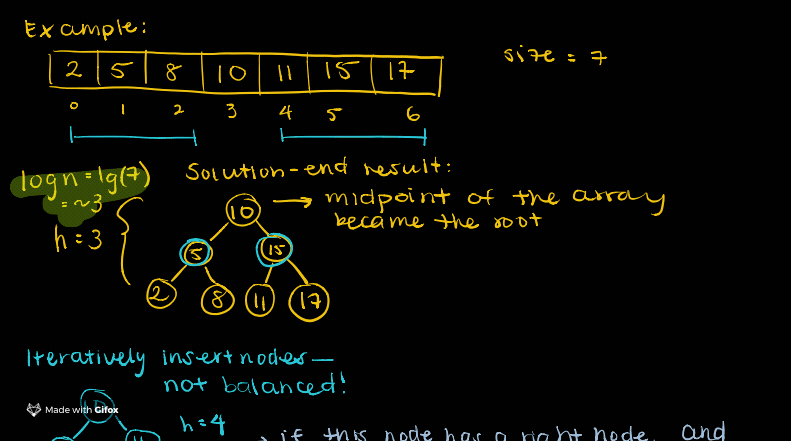 Example:
2 5 8 10 11 15 17
size = 7
0 1 2 3 4 5 6
logn = lg(7)
= ~3
h = 3
Solution-end result:
10 → midpoint of the array
became the root
5 15
2 8 11 17
Iteratively insert nodes—
not balanced!
Made with Gifox
h=4
if this node has a right node, and